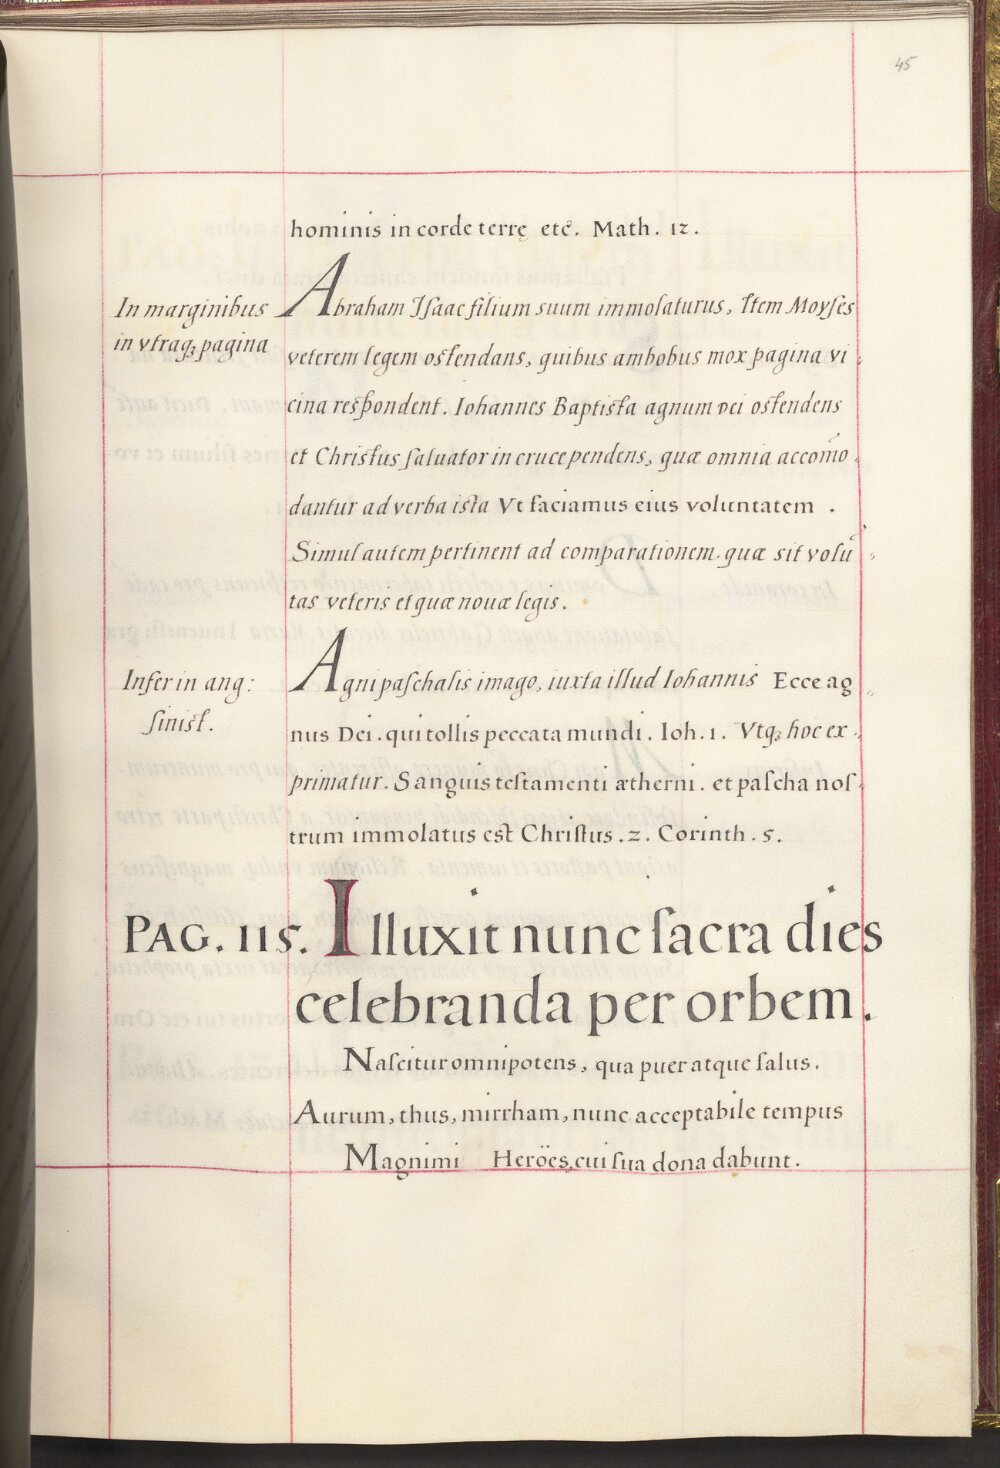 45
hominis in corde terrę etc̃. Math. 12.
In marginibus
in vtraqꝫ pagina
Abraham Iſaac filium suum immolaturus, Item Moyſes
veterem legem oſtendans, quibus ambobus mox pagina vi
cina reſpondent. Iohannes Baptiſta agnum Dei oſtendens
et Chriſtus ſaluator in cruce pendens, quæ omnia accom̃o
dantur ad verba iſta Vt faciamus eius voluntatem .
Simul autem pertinent ad comparationem. quæ sit volũ
tas veteris et quæ nouæ legis.
Infer in ang:
ſiniſt.
Agni paſchalis imago, iuxta illud Iohannis Ecce ag
nus Dei. qui tollis peccata mundi. Ioh. 1. Vtqꝫ hoc ex
primatur. Sanguis teſtamenti ætherni. et paſcha noſ
trum immolatus eſt Chriſtus. 2. Corinth. 5.
PAG. 115. Illuxit nunc ſacra dies
celebranda per orbem.
Naſcitur omnipotens, qua puer atque ſalus.
Aurum, thus, mirrham, nunc acceptabile tempus
Magnimi Heröes, cui ſua dona dabunt.